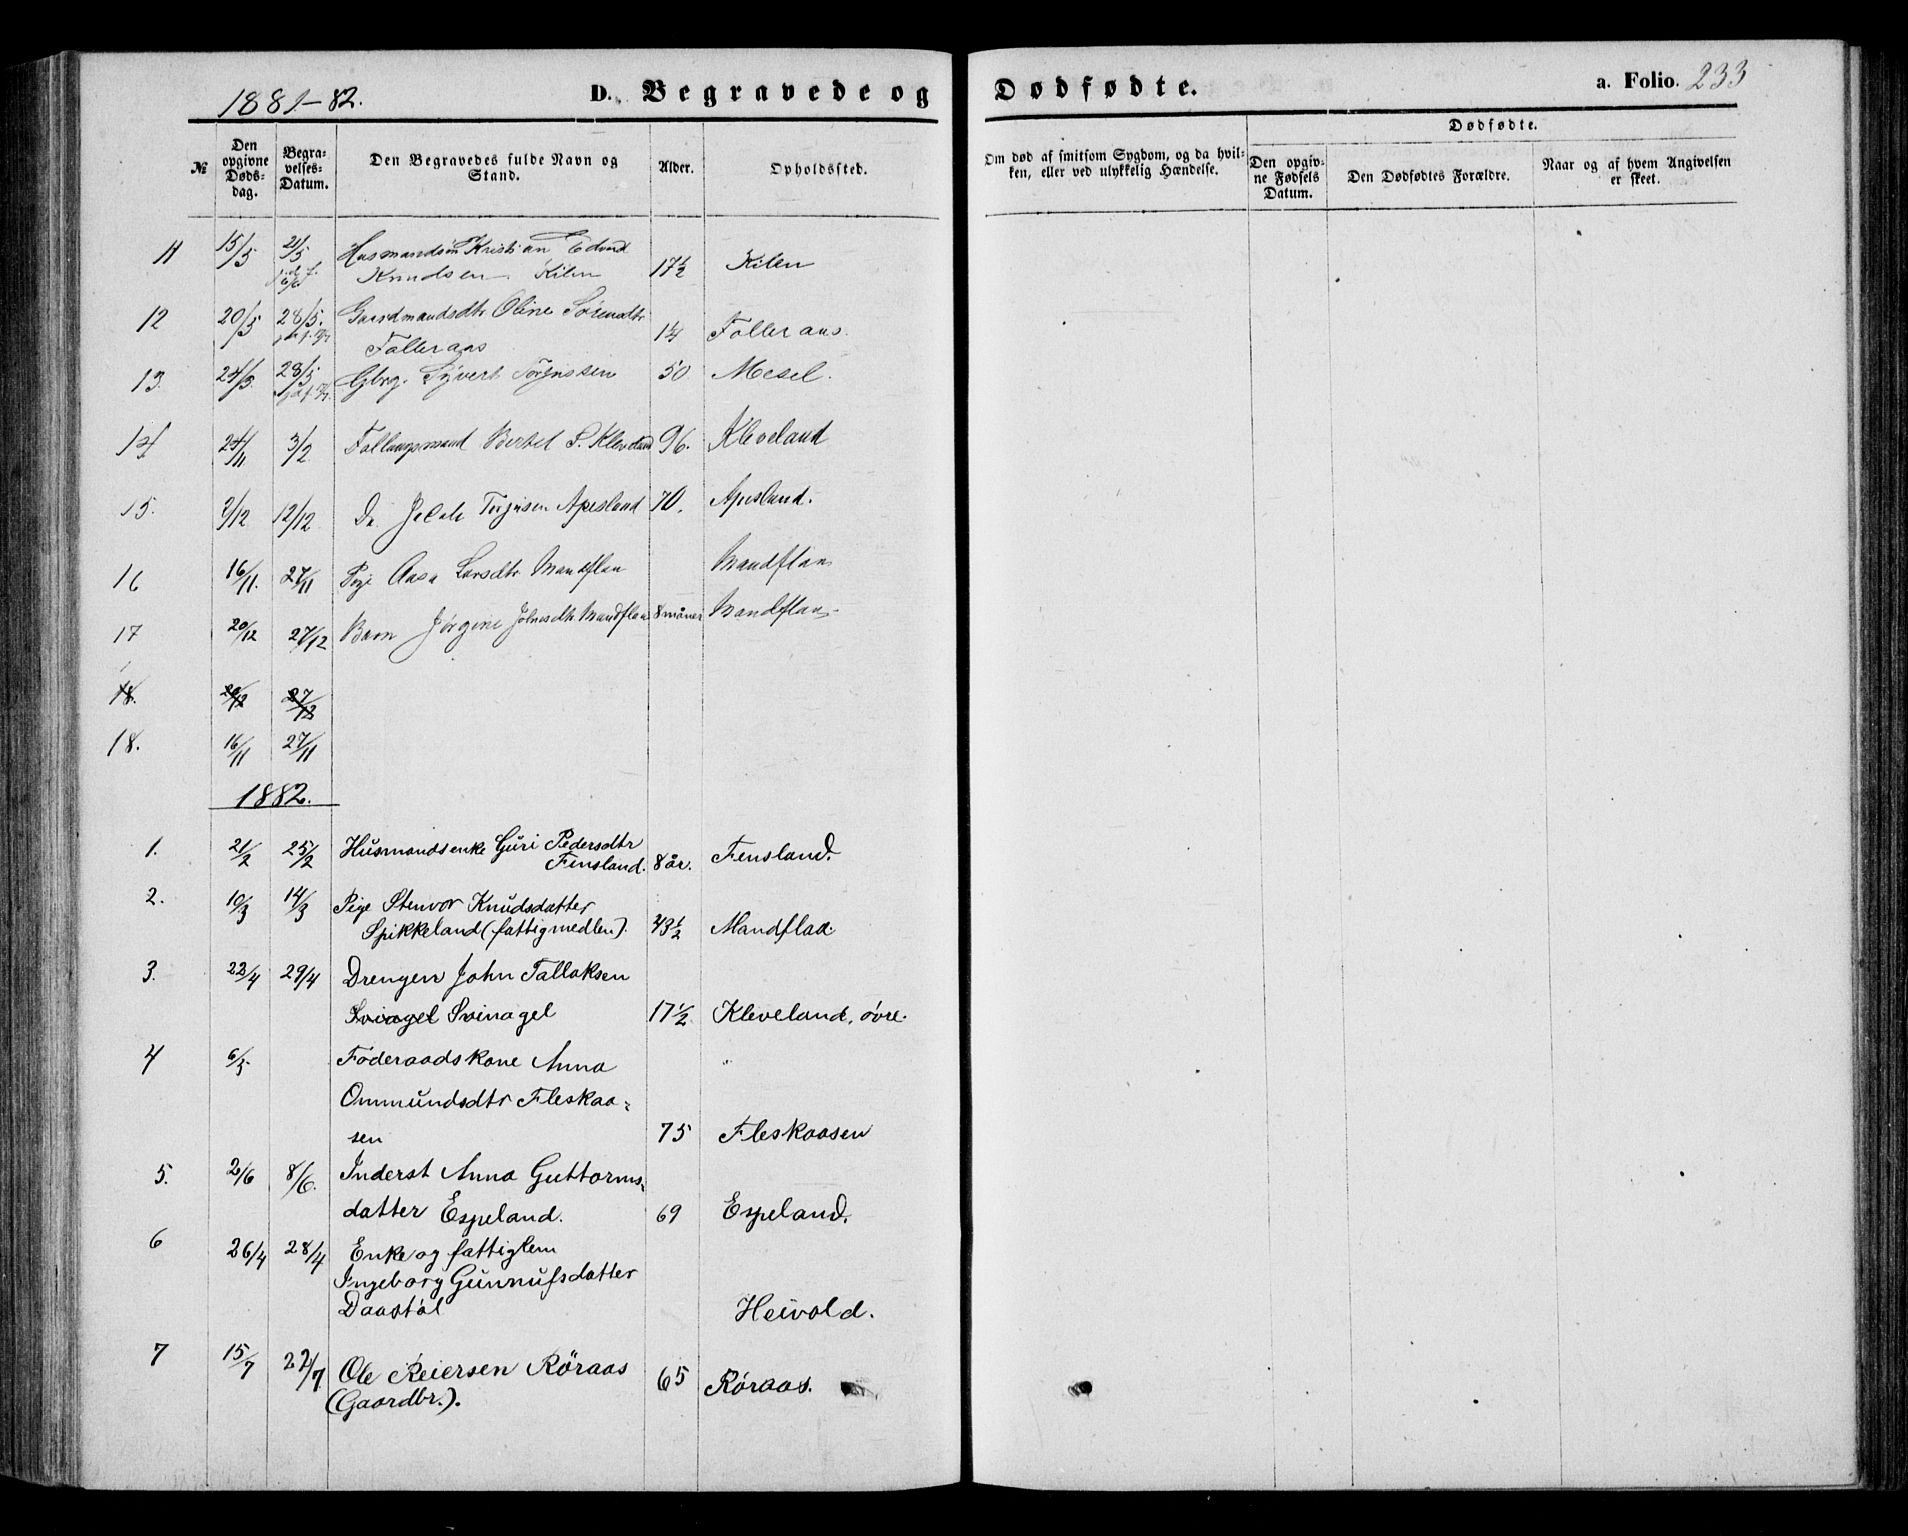 1881-82.
D. Begravede og
Dødfødte.
a. Folio. 233
№
Den opgivne Døds-dag.
Begra-velses-Datum.
Den Begravedes fulde Navn og Stand.
Alder.
Opholdssted.
Om død af smitsom Sygdom, og da hvil-
ken, eller ved ulykkelig Hændelse.
Dødfødte.
Den opgiv-ne Fødsels Datum.
Den Dødfødtes Forældre.
Naar og af hvem Angivelsen er skeet.
11 15/5 21/5 Husmandsøn Kristian Edvard
Knudsen Kilen 17½ Kilen
12 20/5 28/5. Gaardmandsdtr Oline
Falleraas Falleraas.
13. 24/5 28/5 Gbrg. Syvert 50 Mesel.
14. 24/11 3/2 Bertel S. Kleveland 96. Kleveland
15. 7/12 12/12 Do. Torjusen Apesland 70. Apesland.
16 16/11. 27/11 Pige Aasa Larsdtr Mandflaa Mandflaa
17 20/12 27/12 Barn Jørgine Mandflaa 8 måner Mandflaa
18. 20/12 27/12
18. 16/11 27/11
1882.
1. 21/2 25/2 Husmandsenke Guri Pedersdtr
Fensland. 8 år. Fensland.
2. 10/3 14/3 Pige Stenvor Knudsdatter
Spikkeland (fattigmedlem). 43½ Mandflaa.
3. 22/4 29/4 Drengen John Tallaksen
Sviagel Svinagel 17½ Kleveland, øvre.
4 6/5 Føderaadskone Anna "
Ommundsdtr Fleskaa-
sen 75 Fleskaasen
5. 2/6 8/6. Inderst Anna Guttorms-
datter Espeland. 69 Espeland.
6 26/4 28/4 Enke og fattiglem
Ingeborg Gunnufsdatter
Daastøl Heivold.
7 15/7 22/7 Ole Reiersen Röraas
(Gaardbr.). 65 Röraas.